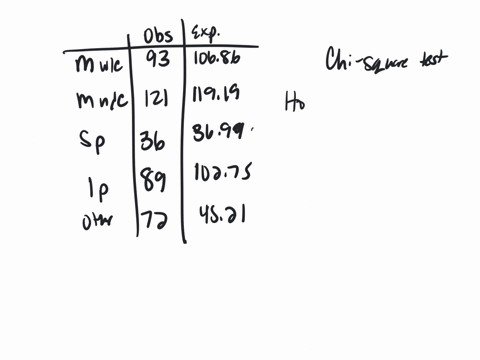 Obs Exp.
M w/c 93 106.86
Chi-square test
M n/c 121 119.19
Ho
Sp 36 36.99
1p 89 102.75
Other 72 45.21